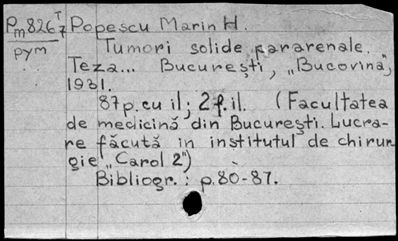 Pm8267T Popescu Marin H.
рум
Tumori solide pararenale.
Teza... Bucureşti, „Bucovina",
1931.
87p. cu il; 2 f. il. (Facultatea
de medicină din Bucureşti. Lucra-
re făcută in institutul de chirur
gie „Carol 2")
Bibliogr.: p. 80-87.